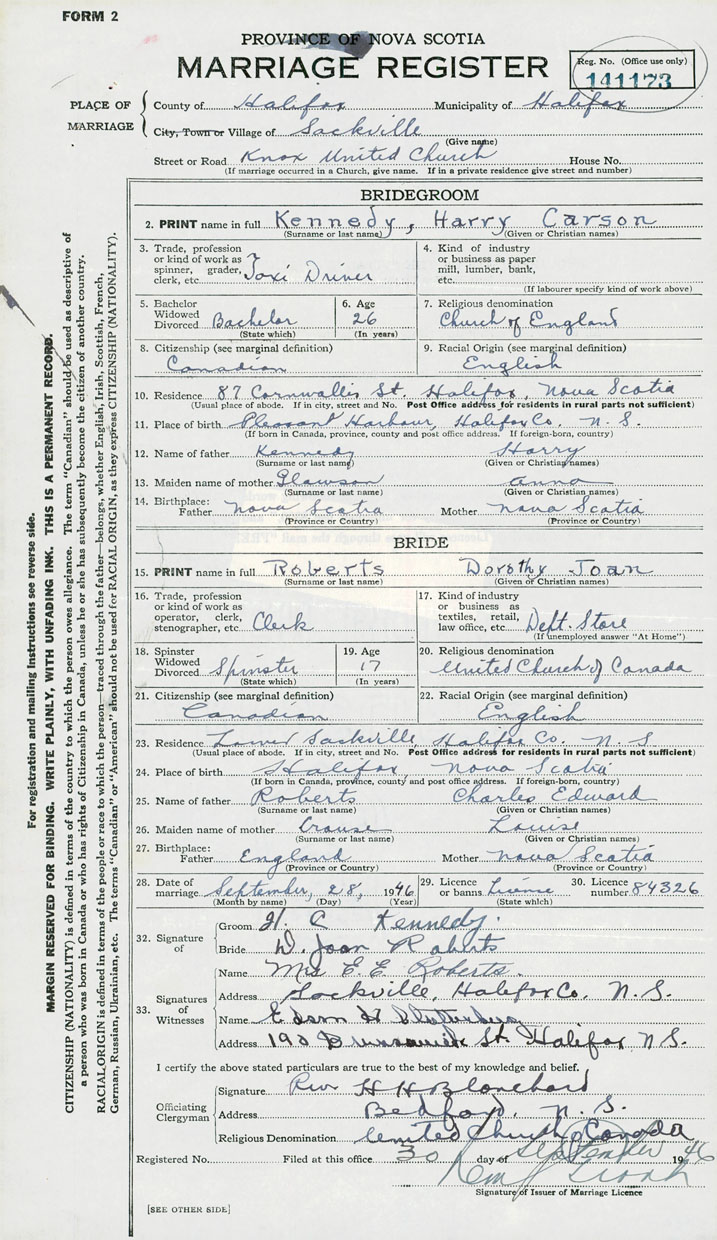 FORM 2
PROVINCE OF NOVA SCOTIA
MARRIAGE REGISTER
Reg. No. (Office use only)
141173
PLACE OF MARRIAGE
County of Halifax Municipality of Halifax
City, Town or Village of Sackville
(Give name)
Street or Road Knox United Church House No.
(If marriage occurred in a Church, give name. If in a private residence give street and number)
BRIDEGROOM
2. PRINT name in full Kennedy, Harry Carson
(Surname or last name) (Given or Christian names)
3. Trade, profession or kind of work as spinner, grader, clerk, etc. Taxi Driver
4. Kind of industry or business as paper mill, lumber, bank, etc.
(If labourer specify kind of work above)
5. Bachelor Widowed Divorced Bachelor
(State which)
6. Age 26
(In years)
7. Religious denomination
Church of England
8. Citizenship (see marginal definition)
Canadian
9. Racial Origin (see marginal definition)
English
10. Residence 87 Cornwallis St. Halifax, Nova Scotia
(Usual place of abode. If in city, street and No. Post Office address for residents in rural parts not sufficient)
11. Place of birth Pleasant Harbour, Halifax Co. N. S.
(If born in Canada, province, county and post office address. If foreign-born, country)
12. Name of father Kennedy Harry
(Surname or last name) (Given or Christian names)
13. Maiden name of mother Glawson Anna
(Surname or last name) (Given or Christian names)
14. Birthplace:
Father Nova Scotia Mother Nova Scotia
(Province or Country) (Province or Country)
BRIDE
15. PRINT name in full Roberts Dorothy Joan
(Surname or last name) (Given or Christian names)
16. Trade, profession or kind of work as operator, clerk, stenographer, etc Clerk
17. Kind of industry or business as textiles, retail, law office, etc. Dept. Store
(If unemployed answer "At Home")
18. Spinster Widowed Divorced Spinster
(State which)
19. Age 17
(In years)
20. Religious denomination
United Church of Canada
21. Citizenship (see marginal definition)
Canadian
22. Racial Origin (see marginal definition)
English
23. Residence Lower Sackville, Halifax Co. N. S.
(Usual place of abode. If in city, street and No. Post Office address for residents in rural parts not sufficient)
24. Place of birth Halifax Nova Scotia
(If born in Canada, province, county and post office address. If foreign-born, country)
25. Name of father Roberts Charles Edward
(Surname or last name) (Given or Christian names)
26. Maiden name of mother Crouse Louise
(Surname or last name) (Given or Christian names)
27. Birthplace:
Father England Mother Nova Scotia
(Province or Country) (Province or Country)
28. Date of marriage September, 28, 1946
(Month by name) (Day) (Year)
29. Licence or banns License
(State which)
30. Licence number 84326
32. Signature of
Groom H. C Kennedy.
Bride D. Joan Roberts
33. Signatures of Witnesses
Name Mrs E. E. Roberts.
Address Sackville, Halifax Co, N. S.
Name Edson H
Address 190 Brunswick St. Halifax N S.
I certify the above stated particulars are true to the best of my knowledge and belief.
Officiating Clergyman
Signature Rev H H Blanchard
Address Bedford, N. S.
Religious Denomination United Church of Canada
Registered No. Filed at this office 30 day of September 1946
Signature of Issuer of Marriage Licence
[SEE OTHER SIDE]
For registration and mailing instructions see reverse side.
MARGIN RESERVED FOR BINDING. WRITE PLAINLY, WITH UNFADING INK. THIS IS A PERMANENT RECORD.
CITIZENSHIP (NATIONALITY) is defined in terms of the country to which the person owes allegiance. The term "Canadian" should be used as descriptive of
a person who was born in Canada or who has rights of Citizenship in Canada, unless he or she has subsequently become the citizen of another country.
RACIAL ORIGIN is defined in terms of the people or race to which the person—traced through the father—belongs, whether English, Irish, Scottish, French,
German, Russian, Ukrainian, etc. The terms "Canadian" or "American" should not be used for RACIAL ORIGIN, as they express CITIZENSHIP (NATIONALITY).